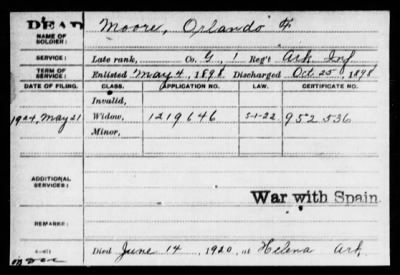 DEAD
NAME OF SOLDIER: Moore, Orlando F.
SERVICE: Late rank, Co. G, 1 Reg't Ark Inf
TERM OF SERVICE: Enlisted May 4, 1898 Discharged Oct. 25, 1898
DATE OF FILING. CLASS. APPLICATION NO. LAW. CERTIFICATE NO.
Invalid,
1924, May 21 Widow, 1219646 5-1-22 952536
Minor,
ADDITIONAL SERVICES:
War with Spain.
REMARKS:
Died June 14, 1920, at Helena Ark.